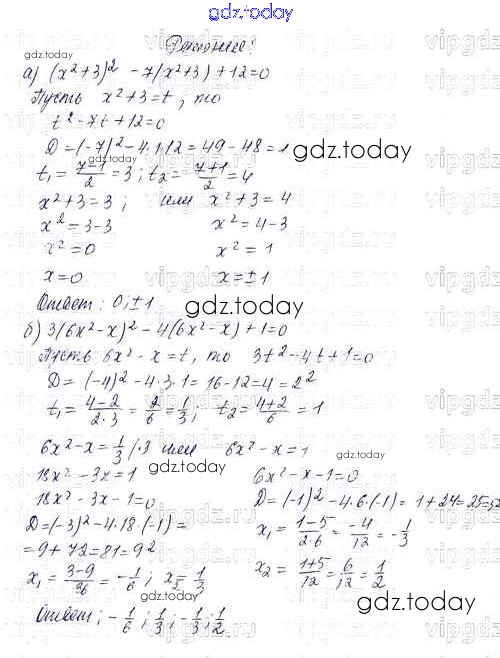 gdz.today
Решение:
gdz.today
а) (x²+3)² - 7(x²+3) + 12=0
Пусть x²+3=t, то
t²-7t+12=0
D=(-7)²-4·1·12=49-48=1
gdz.today
gdz.today
t₁=\frac{7-1}{2}=3; t₂=\frac{7+1}{2}=4
x²+3=3; или x²+3=4
x²=3-3 x²=4-3
x²=0 x²=1
x=0 x=±1
Ответ: 0; ±1
gdz.today
б) 3(6x²-x)²-4(6x²-x)+1=0
Пусть 6x²-x=t, то 3t²-4t+1=0
D=(-4)²-4·3·1=16-12=4=2²
t₁=\frac{4-2}{2·3}=\frac{2}{6}=\frac{1}{3}; t₂=\frac{4+2}{6}=1
6x²-x=\frac{1}{3} /·3 или 6x²-x=1
gdz.today
gdz.today
18x²-3x=1 6x²-x-1=0
18x²-3x-1=0 D=(-1)²-4·6·(-1)=1+24=25=5²
D=(-3)²-4·18·(-1)= x₁=\frac{1-5}{2·6}=\frac{-4}{12}=-\frac{1}{3}
=9+72=81=9²
x₁=\frac{3-9}{36}=-\frac{1}{6}; x₂=\frac{1}{3} x₂=\frac{1+5}{12}=\frac{6}{12}=\frac{1}{2}
gdz.today
Ответ: -\frac{1}{6}; \frac{1}{3}; -\frac{1}{3}; \frac{1}{2}.